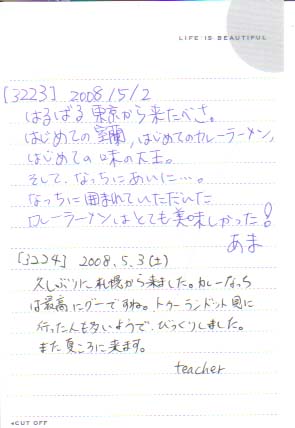 LIFE IS BEAUTIFUL
[3223] 2008/5/2
はるばる東京から来たべさ。
はじめての室蘭、はじめてのカレーラーメン、
はじめての味の大王。
そして、なっちにあいに…。
なっちに囲まれていただいた
カレーラーメンはとても美味しかった!
あま
[3224] 2008.5.3(土)
久しぶりに札幌から来ました。カレーなっち
は最高にグーですね。トゥーランドット見に
行った人も多いようで、びっくりしました。
また夏ころに来ます。
teacher
CUT OFF